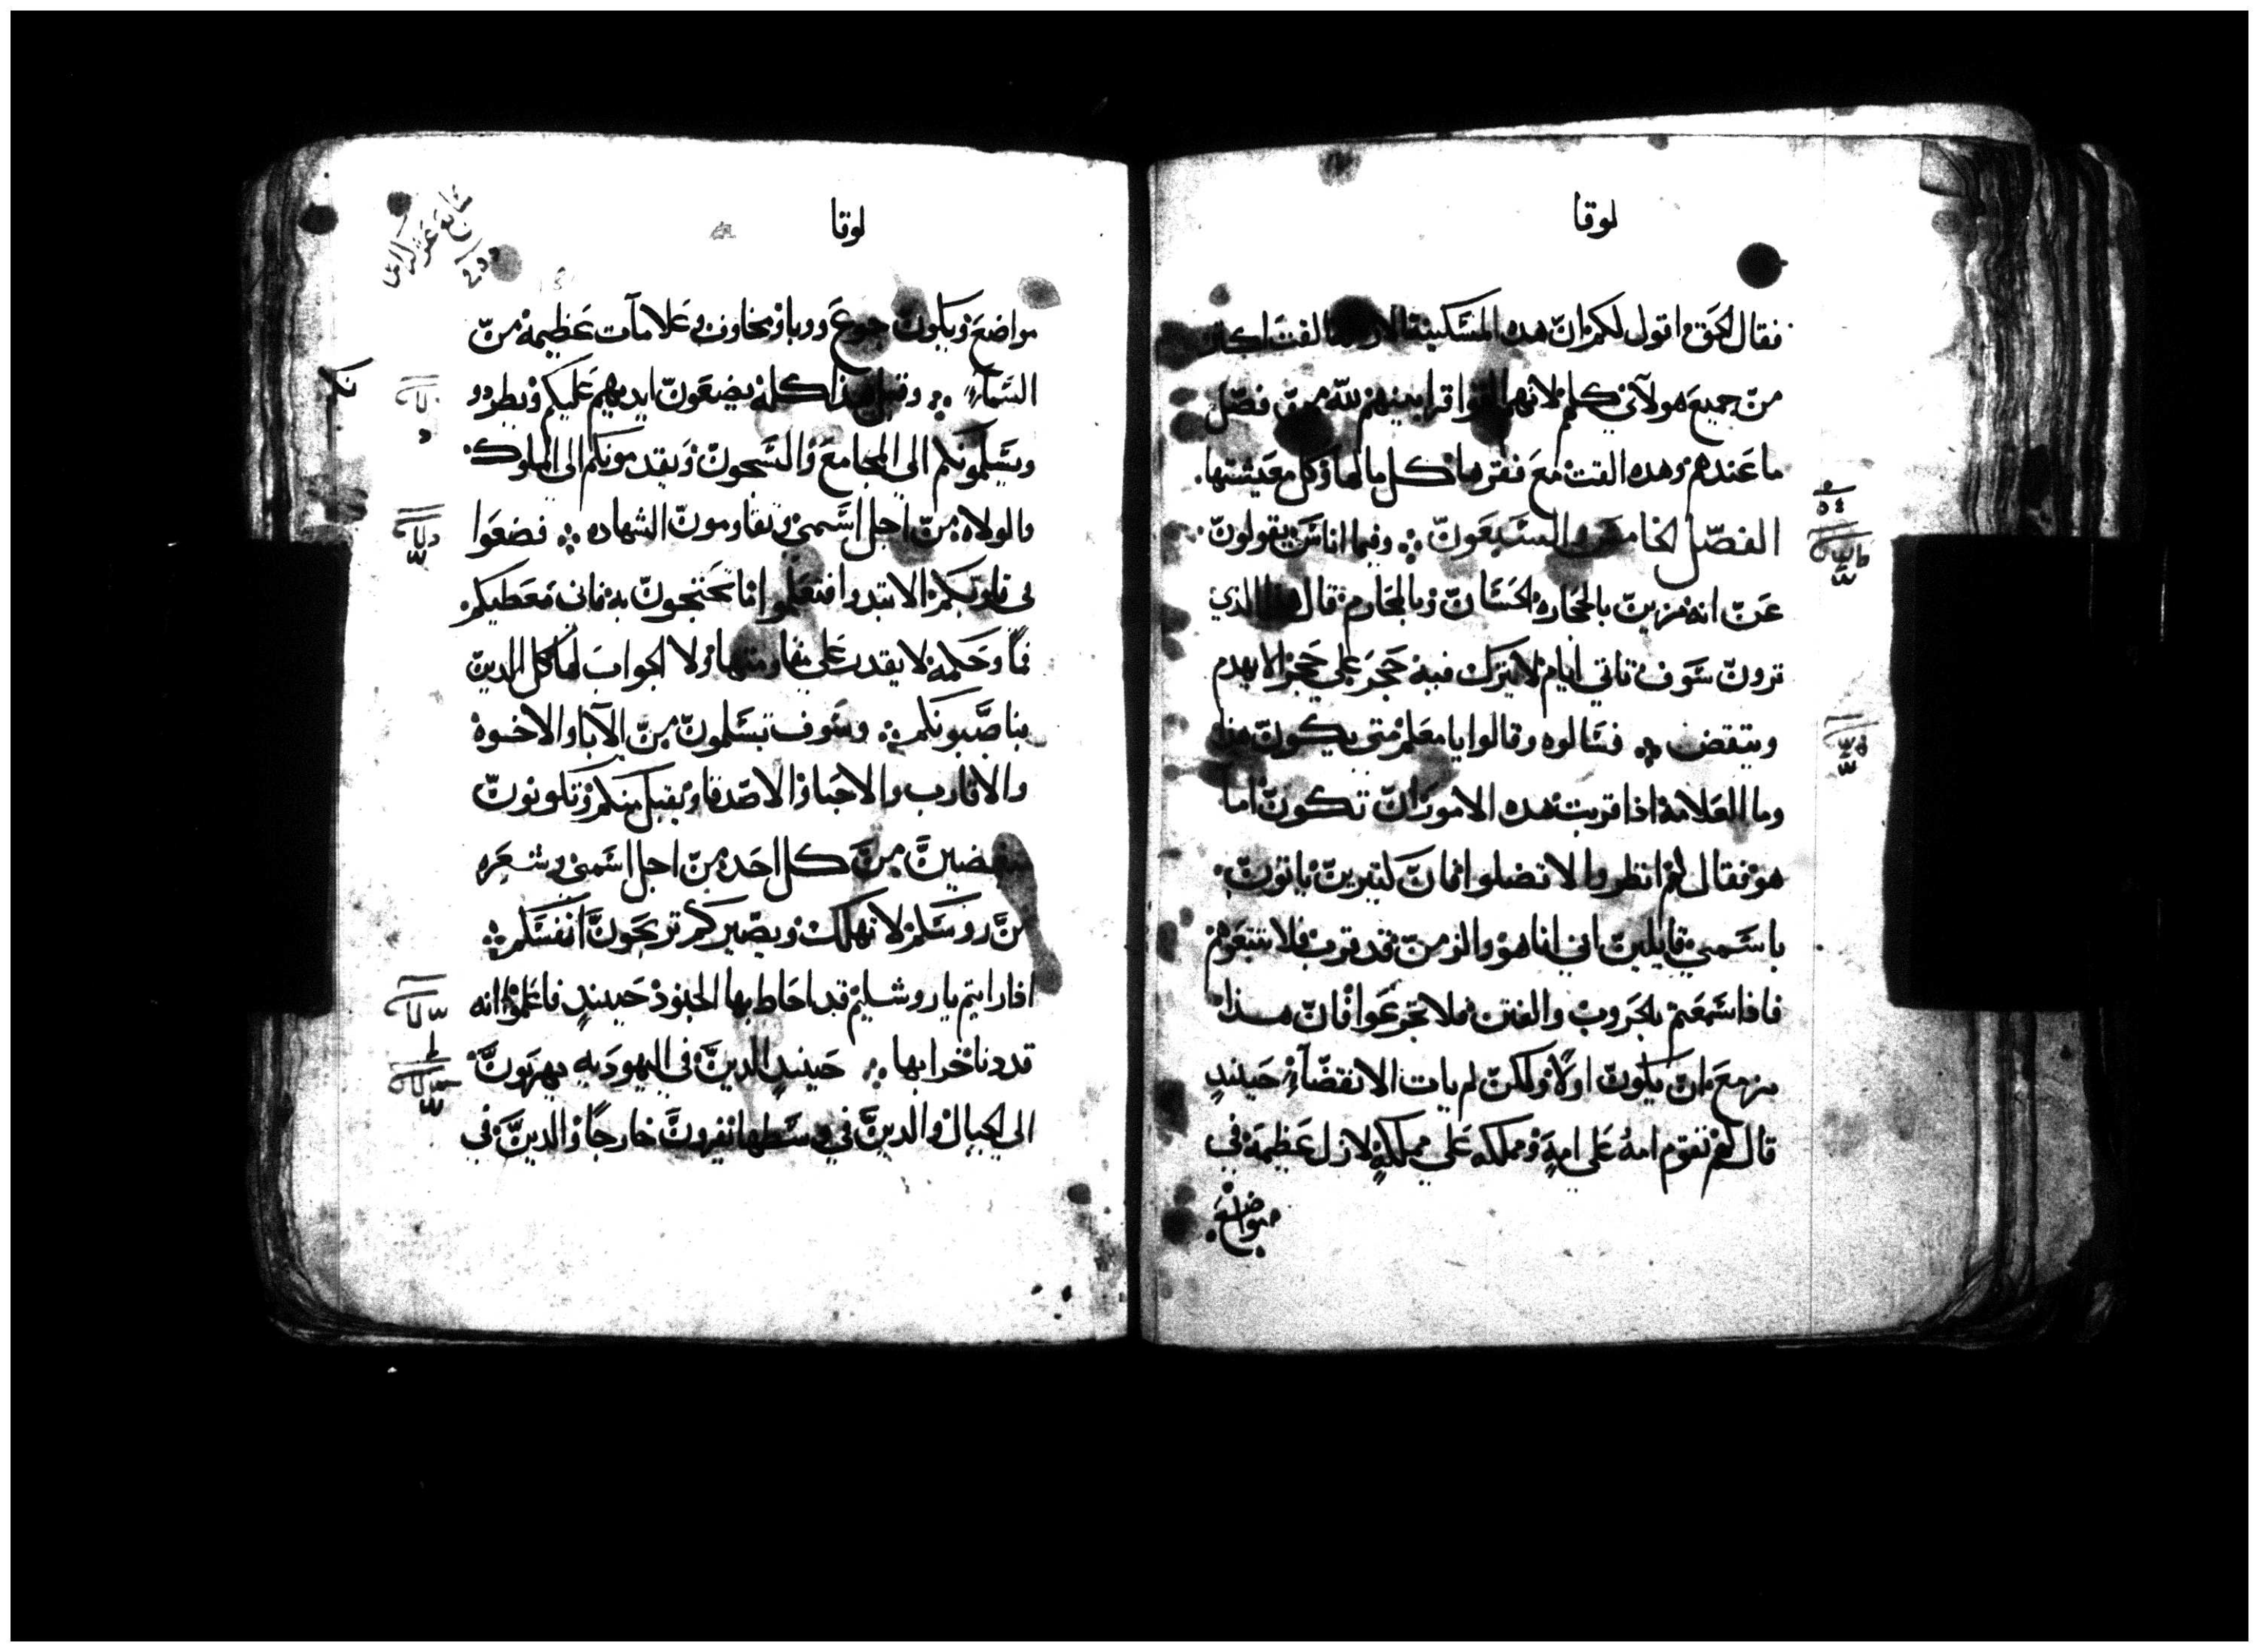 لوقا
فقال الحق اقول لكم ان هده المسكينة الارمله القت اكتر
من جميع هولآئي كلهم لانهم القوا قرابينهم لله من فضل
ما عندهم وهده القت مع فقرها كل مالها وكل معيشتها.
الفصل الخامس والسبعون ፨ وفيما اناس يقولون
عن انه مزين بالحجاره الحسان وبالمحارم قال هذا الذي
ترون سوف تاتي ايام لا يترك فيه حجر علي حجر الا يهدم
وينتقض ፨ فسالوه وقالوا يا معلم متي يكون هذا
وما العلامة اذا قربت هده الامور ان تكون اما
هو فقال لهم انظروا لا تضلوا فان كتيرين ياتون
باسمي قايلين اني انا هو والزمن قد قرب فلا تتبعوهم
فاذا سمعتم بالحروب والفتن فلا تجزعوا فان هذا
مزمع ان يكون اولاً ولكن لم يات الانقضآء حينيدٍ
قال لهم تقوم امة على امةٍ ومملكه على مملكةٍ لازل عظيمة في
مواضع
لوقا
مواضع ويكون جوع ووبا ومخاوف وعلامآت عظيمة من
السمآء ፨ وقبل هذا كله يضعون ايديهم عليكم ويطردو
ويسلمونكم الي المجامع والسجون ويقدمونكم الي الملوك
والولاه من اجل اسمي وتقاومون الشهاده ፨ فضعوا
في قلوبكم الا تبتدوا فتعلموا تحتجون به فاني معطيكم
فماً وحكمة لا يقدر علي مقاومتها ولا الجواب لها كل الدين
يناصبونكم ፨ وسوف تسلمون من الآبا والاخوة
والاقارب والاحبا والاصدقا ويقتل منكم وتكونون
مبغضين من كل احد من اجل اسمي وشعره
من روسكم لا تهلك وبصبركم تربحون انفسكم ፨
افا رايتم ياروشليم قد احاط بها الجنود حينيدٍ فاعلموا انه
قد دنا خرابها ፨ حينيدٍ الدين في اليهوديه يهربون
الي الجبال والدين في وسطها يفرون خارجاً والدين في